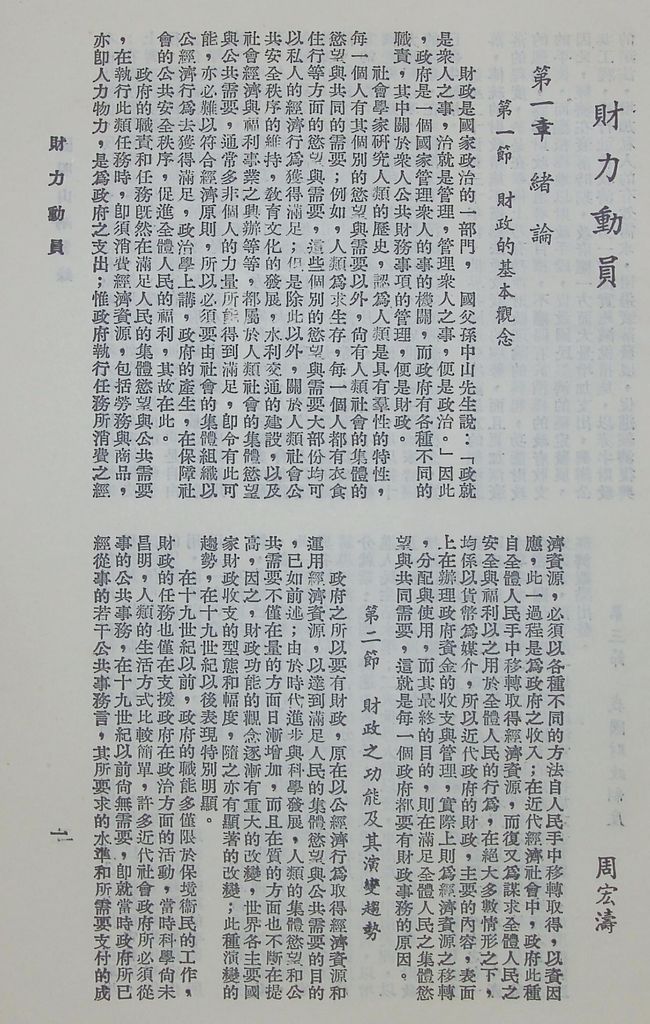 財力動員
周宏濤
第一章　緒論
第一節　財政的基本觀念
財政是國家政治的一部門，　國父孫中山先生說：「政就
是衆人之事，治就是管理，管理衆人之事，便是政治。」因此
，政府是一個國家管理衆人的事的機關，而政府有各種不同的
職責，其中關於衆人公共財務事項的管理，便是財政。
社會學家研究人類的歷史，認為人類是具有羣性的特性，
每一個人有其個別的慾望與需要以外，尙有人類社會的集體的
慾望與共同的需要；例如，人類為求生存，每一個人都有衣食
住行等方面的慾望與需要，這些個別的慾望與需要大部份均可
以私人的經濟行為獲得滿足；但是除此以外，關於人類社會公
共安全秩序的維持，敎育文化的發展，水利交通的建設，以及
社會經濟與福利事業之興辦等等，都屬於人類社會的集體慾望
與公共需要，通常多非個人的力量所能得到滿足，卽令有此可
能，亦必難以符合經濟原則，所以必須要由社會的集體組織以
公經濟行為去獲得滿足，政治學上講，政府的產生，在保障社
會的公共安全秩序，促進全體人民的福利，其故在此。
政府的職責和任務旣然在滿足人民的集體慾望與公共需要
，在執行此類任務時，卽須消費經濟資源，包括勞務與商品，
亦卽人力物力，是為政府之支出；惟政府執行任務所消費之經
濟資源，必須以各種不同的方法自人民手中移轉取得，以資因
應，此一過程是為政府之收入；在近代經濟社會中，政府此種
自全體人民手中移轉取得經濟資源，而復又為謀求全體人民之
安全與福利以之用於全體人民的行為，在絕大多數情形之下，
均係以貨幣為媒介，所以近代政府的財政，主要的內容，表面
上在辦理政府資金的收支與管理，實際上則為經濟資源之移轉
，分配與使用，而其最終的目的，則在滿足全體人民之集體慾
望與共同需要，這就是每一個政府都要有財政事務的原因。
第二節　財政之功能及其演變趨勢
政府之所以要有財政，原在以公經濟行為取得經濟資源和
運用經濟資源，以達到滿足人民的集體慾望與公共需要的目的
，已如前述；由於時代進步與科學發展，人類的集體慾望和公
共需要不僅在量的方面日漸增加，而且在質的方面也不斷在提
高，因之，財政功能的觀念逐漸有重大的改變，世界各主要國
家財政收支的型態和幅度，隨之亦有顯著的改變；此種演變的
趨勢，在十九世紀以後表現特別明顯。
在十九世紀以前，政府的職能多僅限於保境衞民的工作，
財政的任務也僅在支援政府在政治方面的活動，當時科學尙未
昌明，人類的生活方式比較簡單，許多近代社會政府所必須從
事的公共事務，在十九世紀以前尙無需要，卽就當時政府所已
經從事的若干公共事務言，其所要求的水準和所需要支付的成
財力動員
一